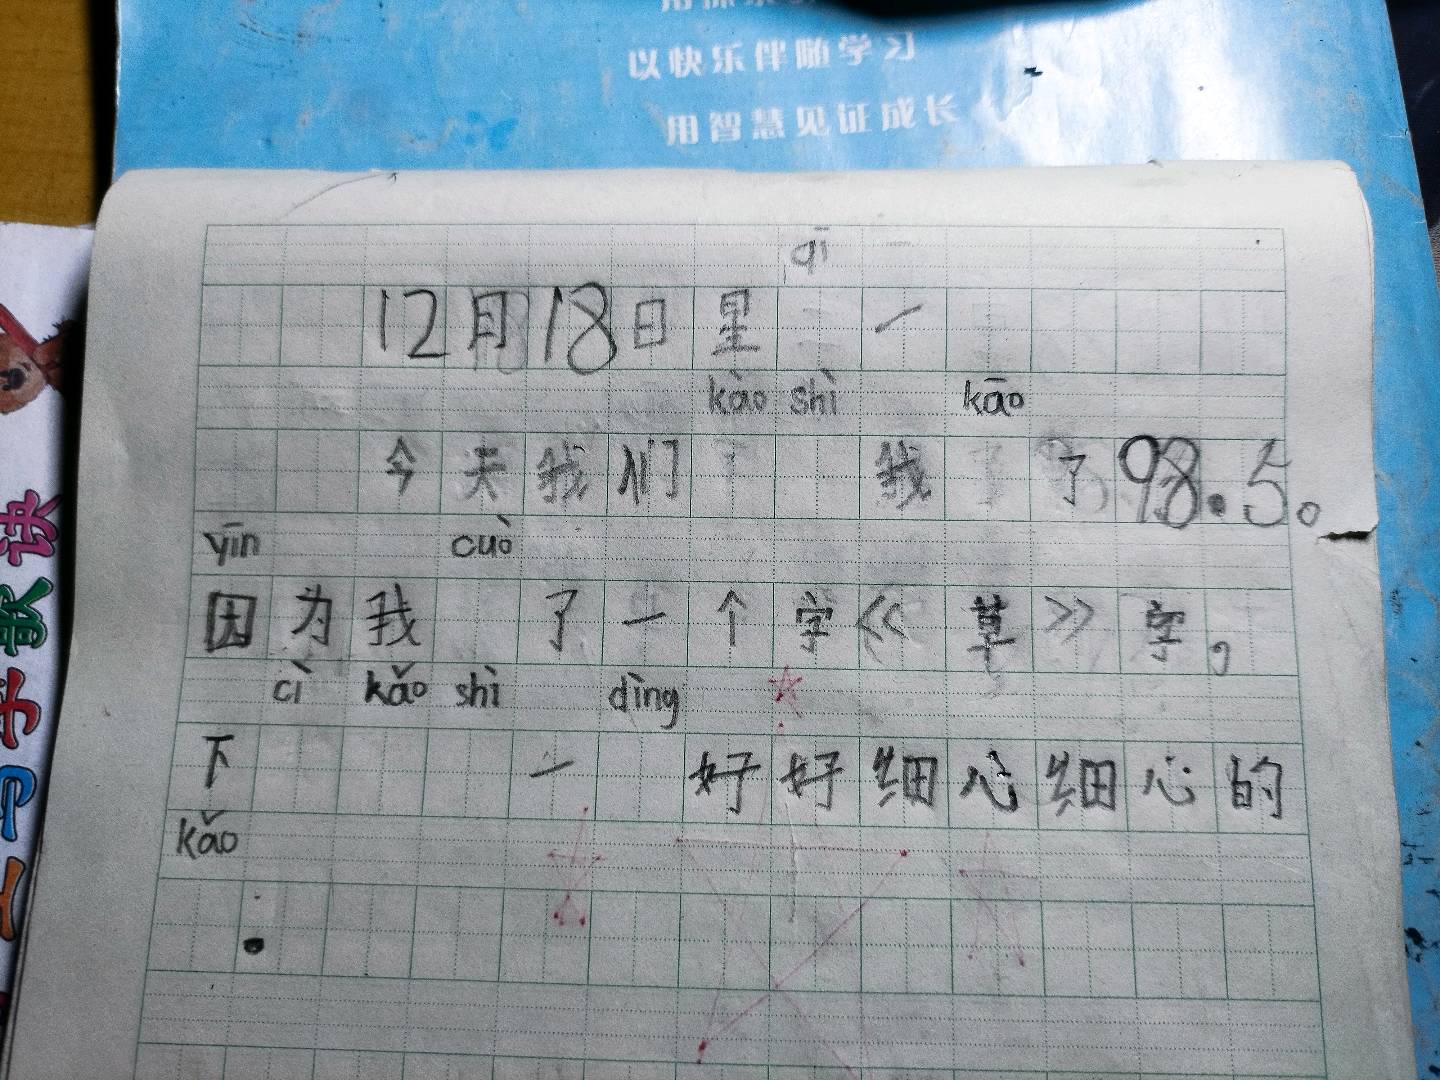 以快乐伴随学习
用智慧见证成长
qī
12月18日里 一
kào shì kāo
今天我们 我 了98.5。
yīn cuò
因为我 了一个字《草》字。
cì kǎo shì dìng
下 一 好好细心细心的
kǎo
.
手歌诀